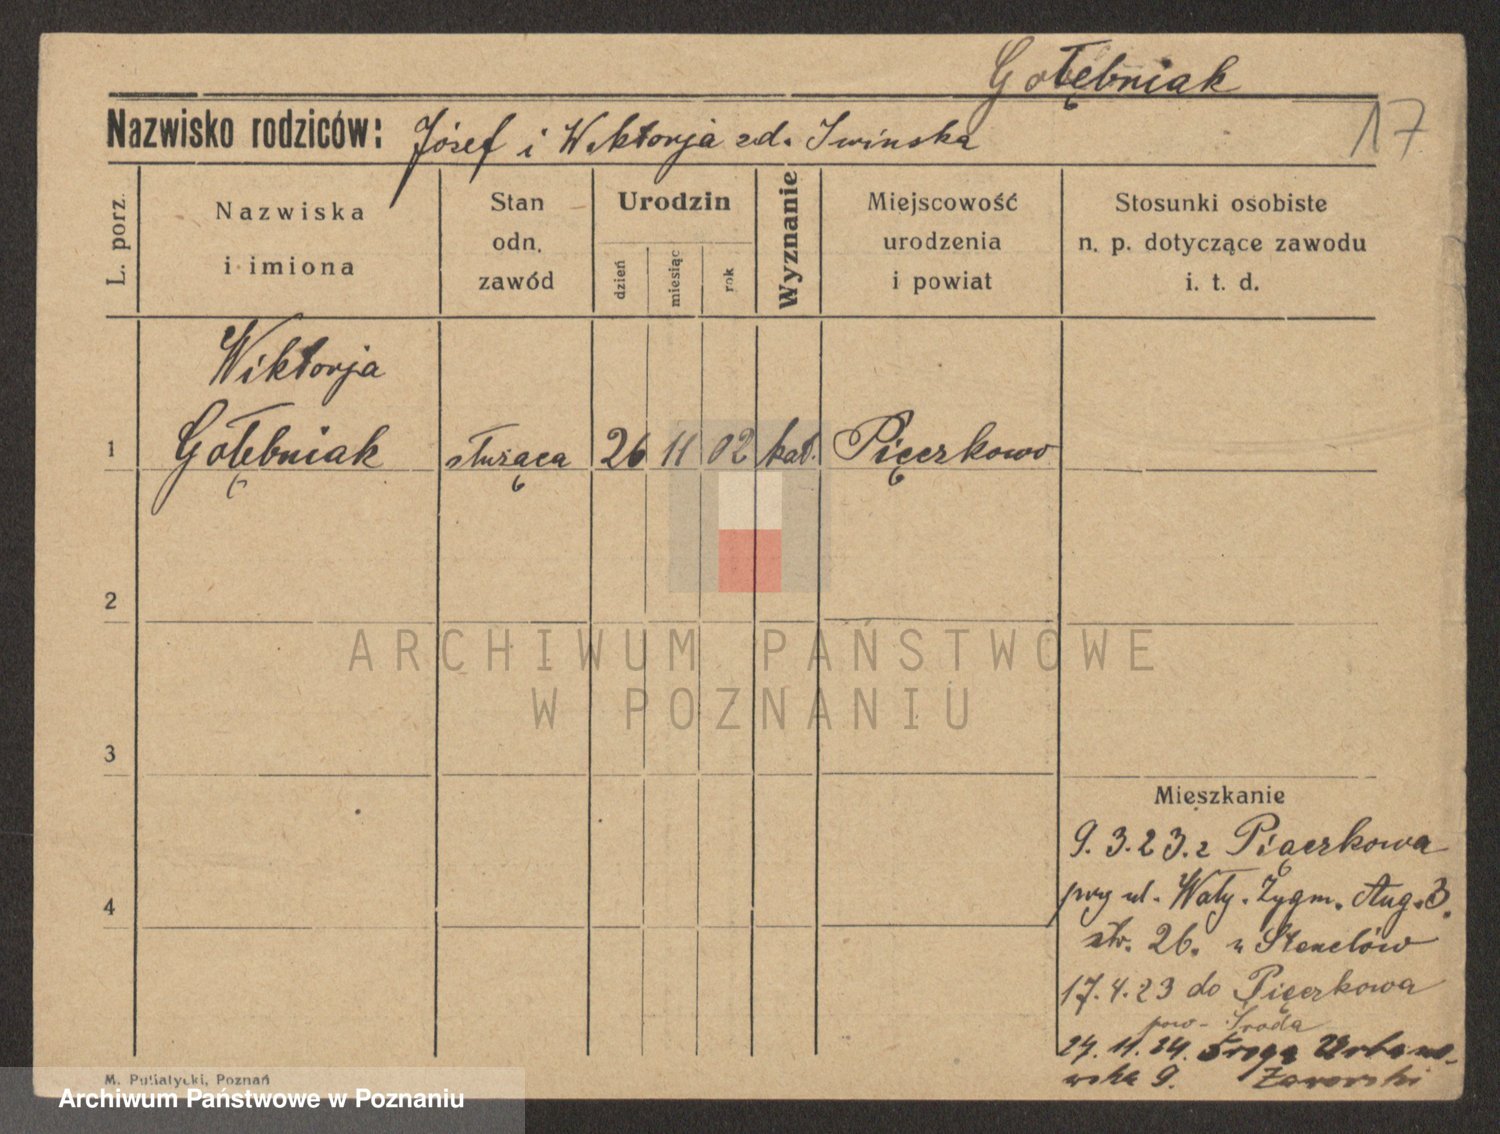 Gołębniak
Nazwisko rodziców: Józef i Wiktorja zd. Iwińska
17
L. porz.
Nazwiska
i imiona
Stan
odn.
zawód
Urodzin
dzień
miesiąc
rok
Wyznanie
Miejscowość
urodzenia
i powiat
Stosunki osobiste
n. p. dotyczące zawodu
i. t. d.
Wiktorja
1 Gołębniak służąca 26 11 02 kat. Pięczkowo
2
3
4
Mieszkanie
9. 3. 23. z Piączkowa
przy ul. Wały. Zygm. Aug. 3.
str. 26. u Stenclów
17. 4. 23 do Pięczkowa
pow - Środa
24. 11. 24.
9.
M. Putiatycki, Poznań
ARCHIWUM PAŃSTWOWE
W POZNANIU
Archiwum Państwowe w Poznaniu